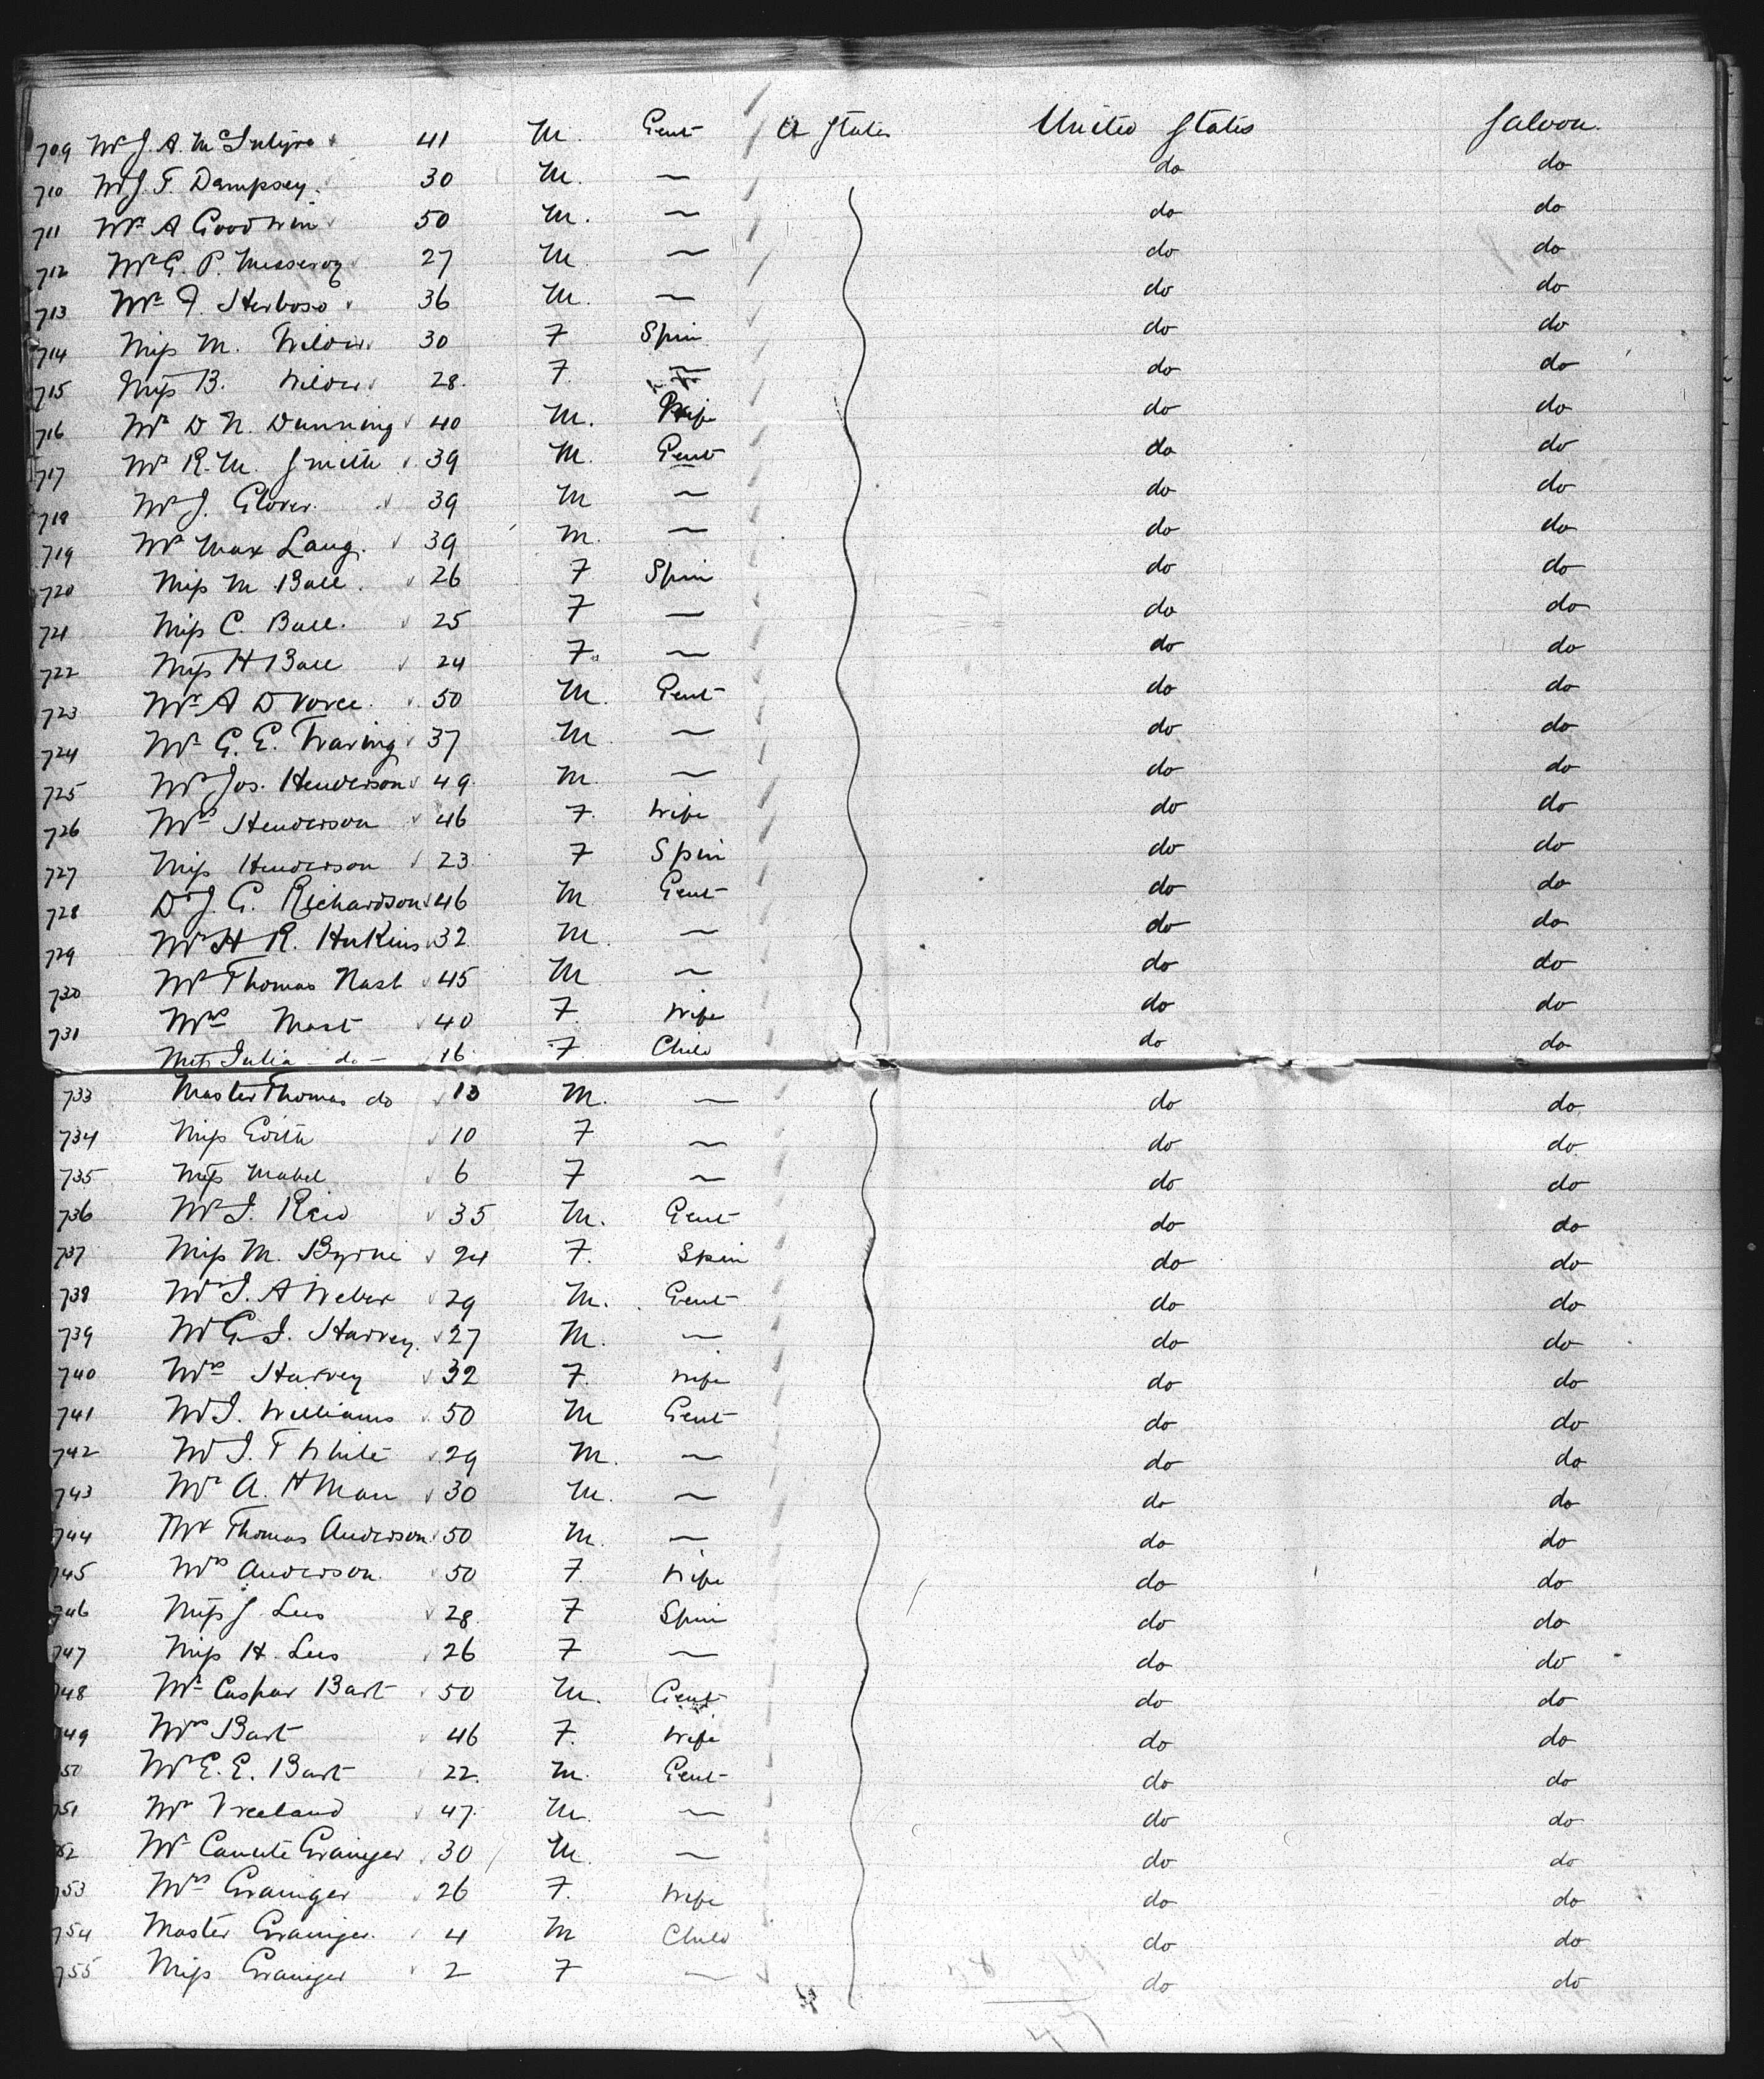 709 Mr J. A. McIntyre 41 M. Gent U States United States Saloon.
710 Mr J. T. Dempsey. 30 M. — do do
711 Mr A Goodwin 50 M. — do do
712 Mr G. P. Messervy 27 M — do do
713 Mr F. Herboso 36 M. — do do
714 Miss M. Wilder 30 F Spin do do
715 Miss B. Wilder 28. F. — do do
716 Mr D N. Dunning 40 M. do do
717 Mr R. M. Smith 39 M. Gent do do
718 Mr J. Glover. 39 M — do do
719 Mr Max Lang. 39 M. — do do
720 Miss M Ball. 26 F Spin do do
721 Miss C. Ball. 25 F — do do
722 Miss H Ball 24 F. — do do
723 Mr A D Vorce. 50 M. Gent do do
724 Mr G. E. Waring 37 M — do do
725 Mr Jos. Henderson 49. M. — do do
726 Mrs Henderson 46 F. Wife do do
727 Miss Henderson 23 F Spin do do
728 Dr J. G. Richardson 46 M. Gent do do
729 Mr H R. Hutkins 32 M. — do do
730 Mr Thomas Nast 45 M — do do
731 Mrs Nast 40 F. Wife do do
Miss Julia — do — 16 F. Child do do
733 Master Thomas do 13 M. — do do
734 Miss Edith 10 F — do do
735 Miss Mabel 6 F — do do
736 Mr J. Reid 35 M. Gent do do
737 Miss M. Byrne 24 F. Spin do do
738 Mr J. A Weber 29 M. Gent do do
739 Mr G. J. Harvey. 27 M. — do do
740 Mrs Harvey 32 F. Wife do do
741 Mr J. Williams 50 M Gent do do
742 Mr J. T White 29 M. — do do
743 Mr A. H Man 30 M. — do do
744 Mr Thomas Anderson 50 M. — do do
745 Mrs Anderson. 50 F. Wife do do
746 Miss J. Lees 28. F Spin do do
747 Miss H. Lees 26 F — do do
748 Mr Caspar Bart 50 M. Gent do do
749 Mrs Bart 46 F. Wife do do
50 Mr E. E. Bart 22. M. Gent do do
751 Mr Vreeland 47. M. — do do
52 Mr Canute Grainger 30 M. — do do
753 Mrs Grainger 26 F. Wife do do
754 Master Grainger. 4 M Child do do
755 Miss Grainger 2 F — do do